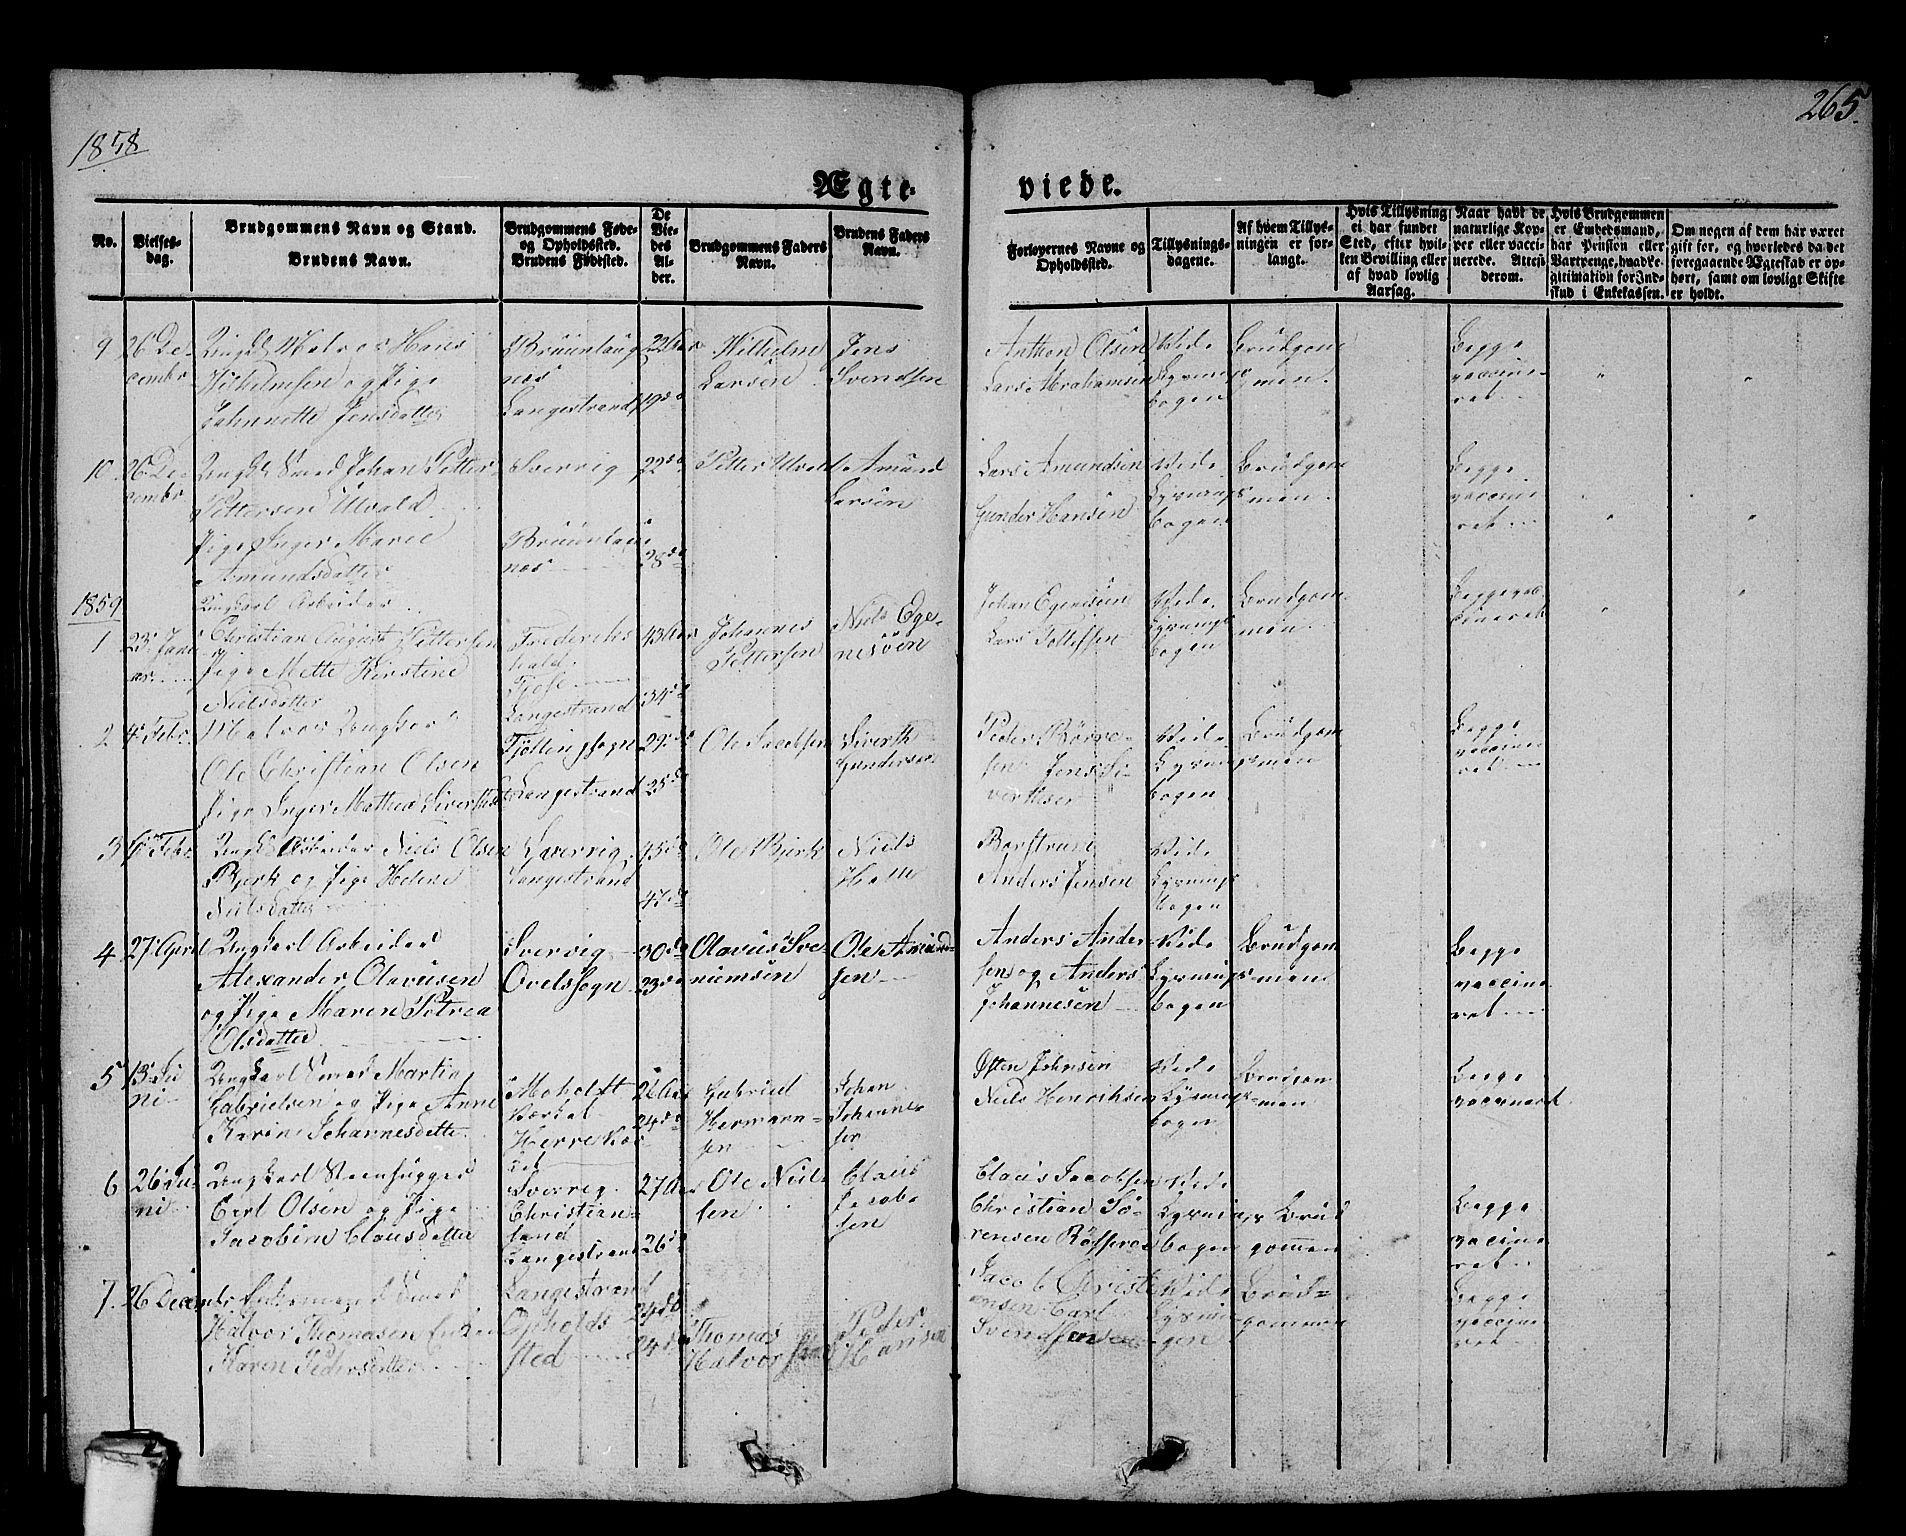 1858
265.
Ægte-
viede.
No.
Vielses-
dag.
Brudgommens Navn og Stand.
Brudens Navn.
Brudgommens Føde-
og Opholdssted.
Brudens Fødested.
De
Vie-
des
Al-
der.
Brudgommens Faders
Navn.
Brudens Faders
Navn.
Forlovernes Navne og
Opholdssted.
Tillysnings-
dagene.
Af hvem Tillys-
ningen er for-
langt.
Hvis Tillysning
ei har fundet
Sted, efter hvil-
ken Bevilling eller
af hvad lovlig
Aarsag.
Naar havt de
naturlige Kop-
per eller vacci-
nerede. Attest
derom.
Hvis Brudgommen
er Embedsmand,
har Pension eller
Vartpenge, hvad Le-
gitimation for Ind-
skud i Enkekassen.
Om nogen af dem har været
gift før, og hvorledes da det
foregaaende Ægteskab er op-
hørt, samt om lovligt Skifte
er holdt.
9 26 De-
cembr
Ungk Matros Hans
Wilhelmsen og Pige
Johnnette Jensdatter
Langestrand
22 Aar
19 do
Wilhelm
Larsen
Jens
Svendsen
Anthon Olsen
Lars Abrahamsen
Vide
Lysnings
bogen
Brudgom
men.
Begge
vaccine-
ret
10 26 De-
cembr
Ungk Smed Johan Petter
Pettersen Ulvald
Pige Inger Marie
Amundsdatter
Sverrig
22 do
28 do
Petter Ulvald
Amund
Larsen
Lars Amundsen
Gunder Hansen
Vide
Lysnings
bogen
Brudgom
men
Begge
vaccine
ret
1859
1 23 Janu
ar
Ungkarl Arbeider
Christian August Pettersen
Pige Mette Kirstine
Nielsdatter
Frederiks
hald.
Langestrand
43 Aar
34 do
Johannes
Pettersen
Niels Ege-
nesøen
Johan Egenesøen
Lars Tollefsen
Vide
Lysnings
bogen
Brudgom
men
Begge vac
cineret
2 4 Febr
Matros Ungkar
Ole Christian Olsen
Pige Inger Mathea Siverthsd
Tjøllingsogn
Langestrand
29 do
25 do
Ole Jacobsen
Siverth
Gundersen
Peder Børre-
sen Jens Si-
verthsen
Vide
Lysnings
bogen
Brudgom
men
Begge
vaccine
ret
3 Febr
Ungk Arbeider Niels Olsen
Bjerk og Pige Helene
Nielsdatter
Sverrig
Langestrand
45 do
47 do
Ole Bjerk
Niels
Anders Jensen
Vide
Lysnings
bogen
4 27 April
Ungkarl Arbeider
Alexander Olavusen
og Pige Maren Petrea
Olsdatter
Sverrig
Ovelssogn
30 do
23 do
Olavus Sve-
niumsen
Ole Amund-
sen
Anders Ander
sen og Anders
Johannesen
Vide
Lysnings
bogen
Brudgom
men
Begge
vaccine
ret
5 13 Ju
ni
Ungkarl Smed Martin
Gabrielsen og Pige Anne
Karine Johannesdatte.
26 Aar
24 do
Gabriel
Hermann-
sen
Johan
Johanne
sen
Østen Johnsen
Niels Henrikhsen
Vide
Lysnings
bogen
Brudgom
men
Begge
vaccineret
6 26 Ju-
ni
Ungkarl Steenhugger
Carl Olsen og Pige
Jacobine Clausdatter
Sverrig.
Christian-
sand
Langestrand
27 Aar
26 do
Ole Niel-
sen
Claus
Jacob-
sen
Claus Jacobsen
Christian Sø-
rensen
Vide
Lysnings
bogen
Brud
gommen
Begge
vaccine
ret
7. 26 Decembr
Enkemand Smed
Halvor Thomasen Enke
Karen Pedersdatter
Langestrand
Opholds
sted
24 do
24 do
Thomas
Halvorsen
Peder
Hansen
Jacob Christi
ansen Carl
Svendsen
Vide
Brud-
gommen
Begge
vaccine
ret